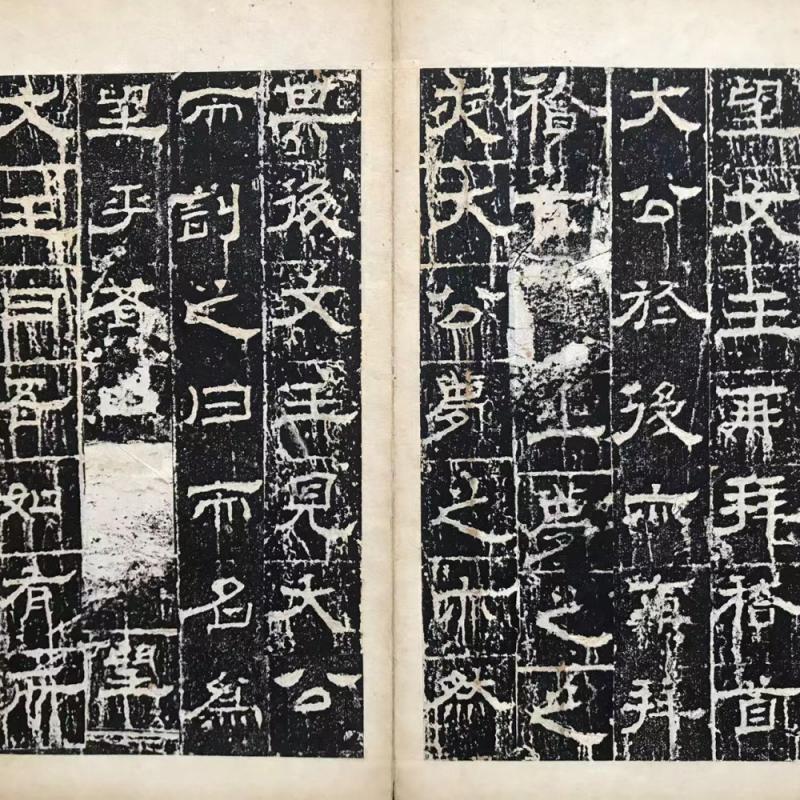 望文王再拜稽首
大公於後亦再拜
稽首王夢之之
夜大公夢之亦然
其後文王見大公
而訆之曰而名為
望乎荅曰望
文王曰吾如有所